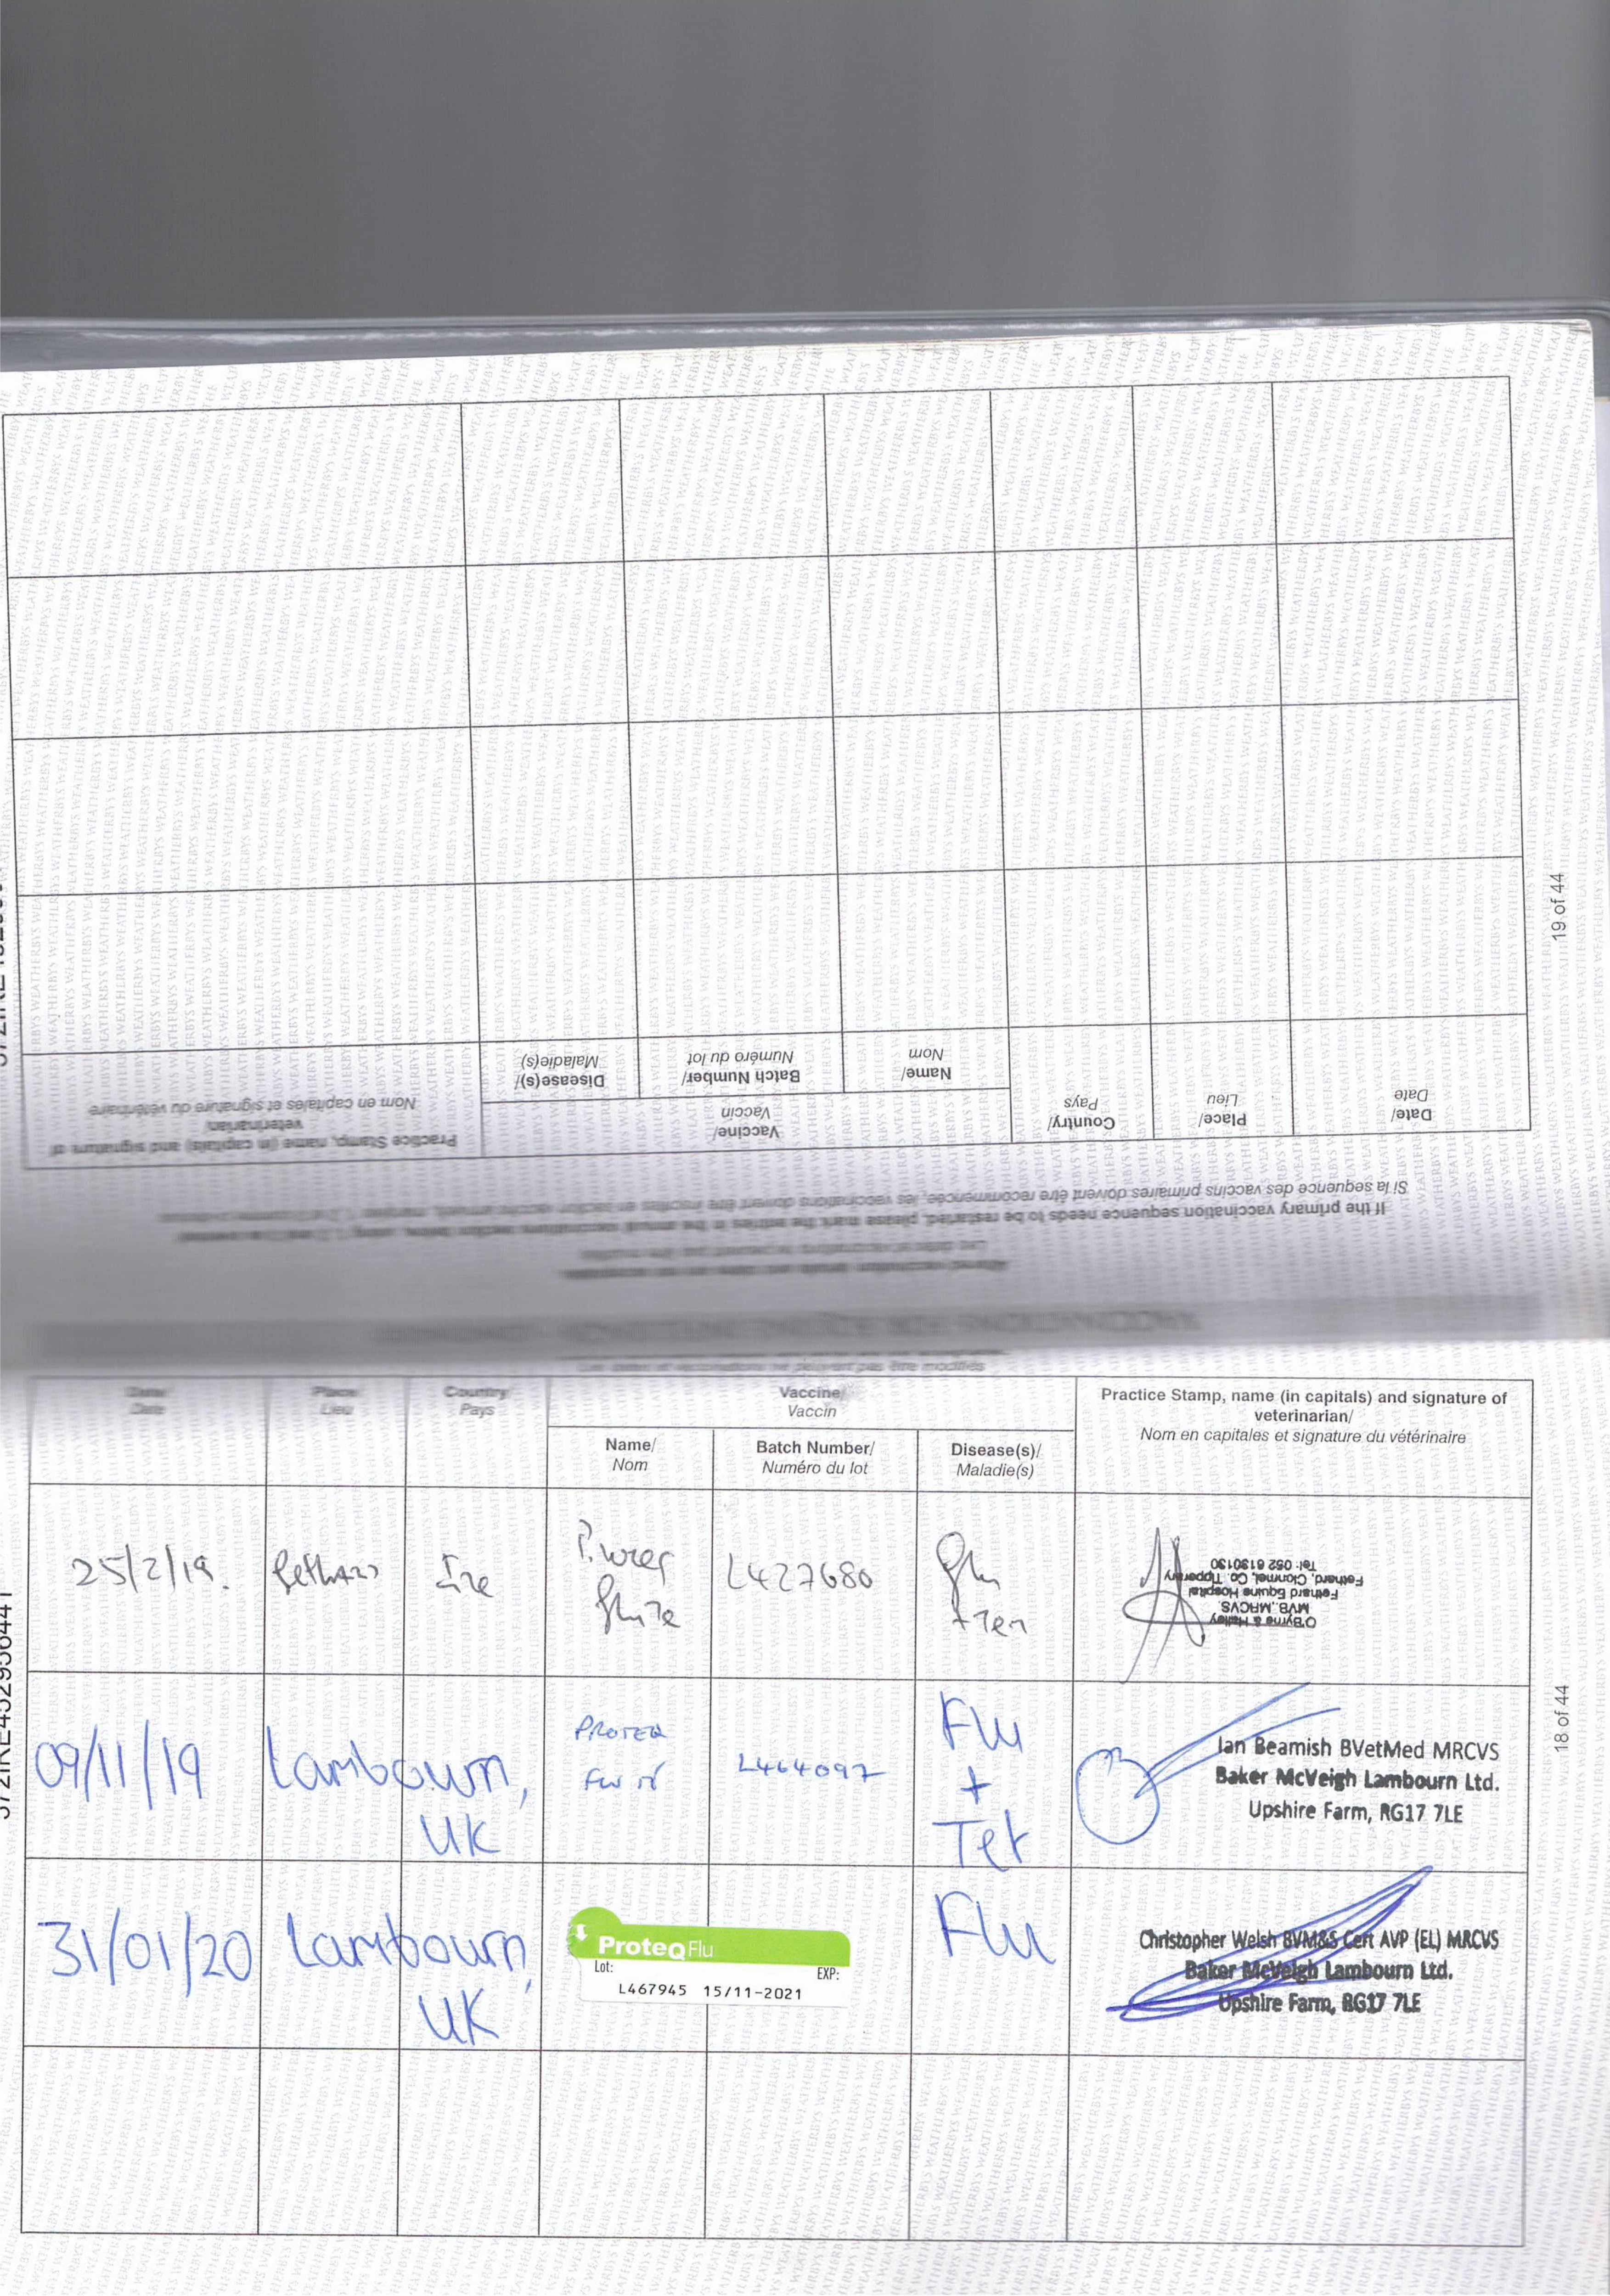 Date/
Date
Place/
Lieu
Country/
Pays
Vaccine/
Vaccin
Name/
Nom
Batch Number/
Numéro du lot
Disease(s)/
Maladie(s)
Practice Stamp, name (in capitals) and signature of
veterinarian/
Nom en capitales et signature du vétérinaire
If the primary vaccination sequence needs to be restarted, please mark the entries in the annual vaccinations section below, using
Si la sequence des vaccins primaires doivent être recommencée, les vaccinations doivent être
19 of 44
Les dates et vaccinations ne peuvent pas être modifiés
Date/
Date
Place/
Lieu
Country/
Pays
Vaccine/
Vaccin
Name/
Nom
Batch Number/
Numéro du lot
Disease(s)/
Maladie(s)
Practice Stamp, name (in capitals) and signature of
veterinarian/
Nom en capitales et signature du vétérinaire
25/2/19.
Ire
L427680
Flu
O'Byrne & Halley
MVB.,MRCVS.
Fethard Equine Hospital
Fethard, Clonmel, Co. Tipperary
Tel: 052 6130130
09/11/19
Lambourn,
UK
PROTEQ
L464097
Flu
+
Tet
Ian Beamish BVetMed MRCVS
Baker McVeigh Lambourn Ltd.
Upshire Farm, RG17 7LE
31/01/20
Lambourn,
UK
ProteqFlu
Lot: EXP:
L467945 15/11-2021
Flu
Christopher Welsh BVM&S Cert AVP (EL) MRCVS
Baker McVeigh Lambourn Ltd.
Upshire Farm, RG17 7LE
18 of 44